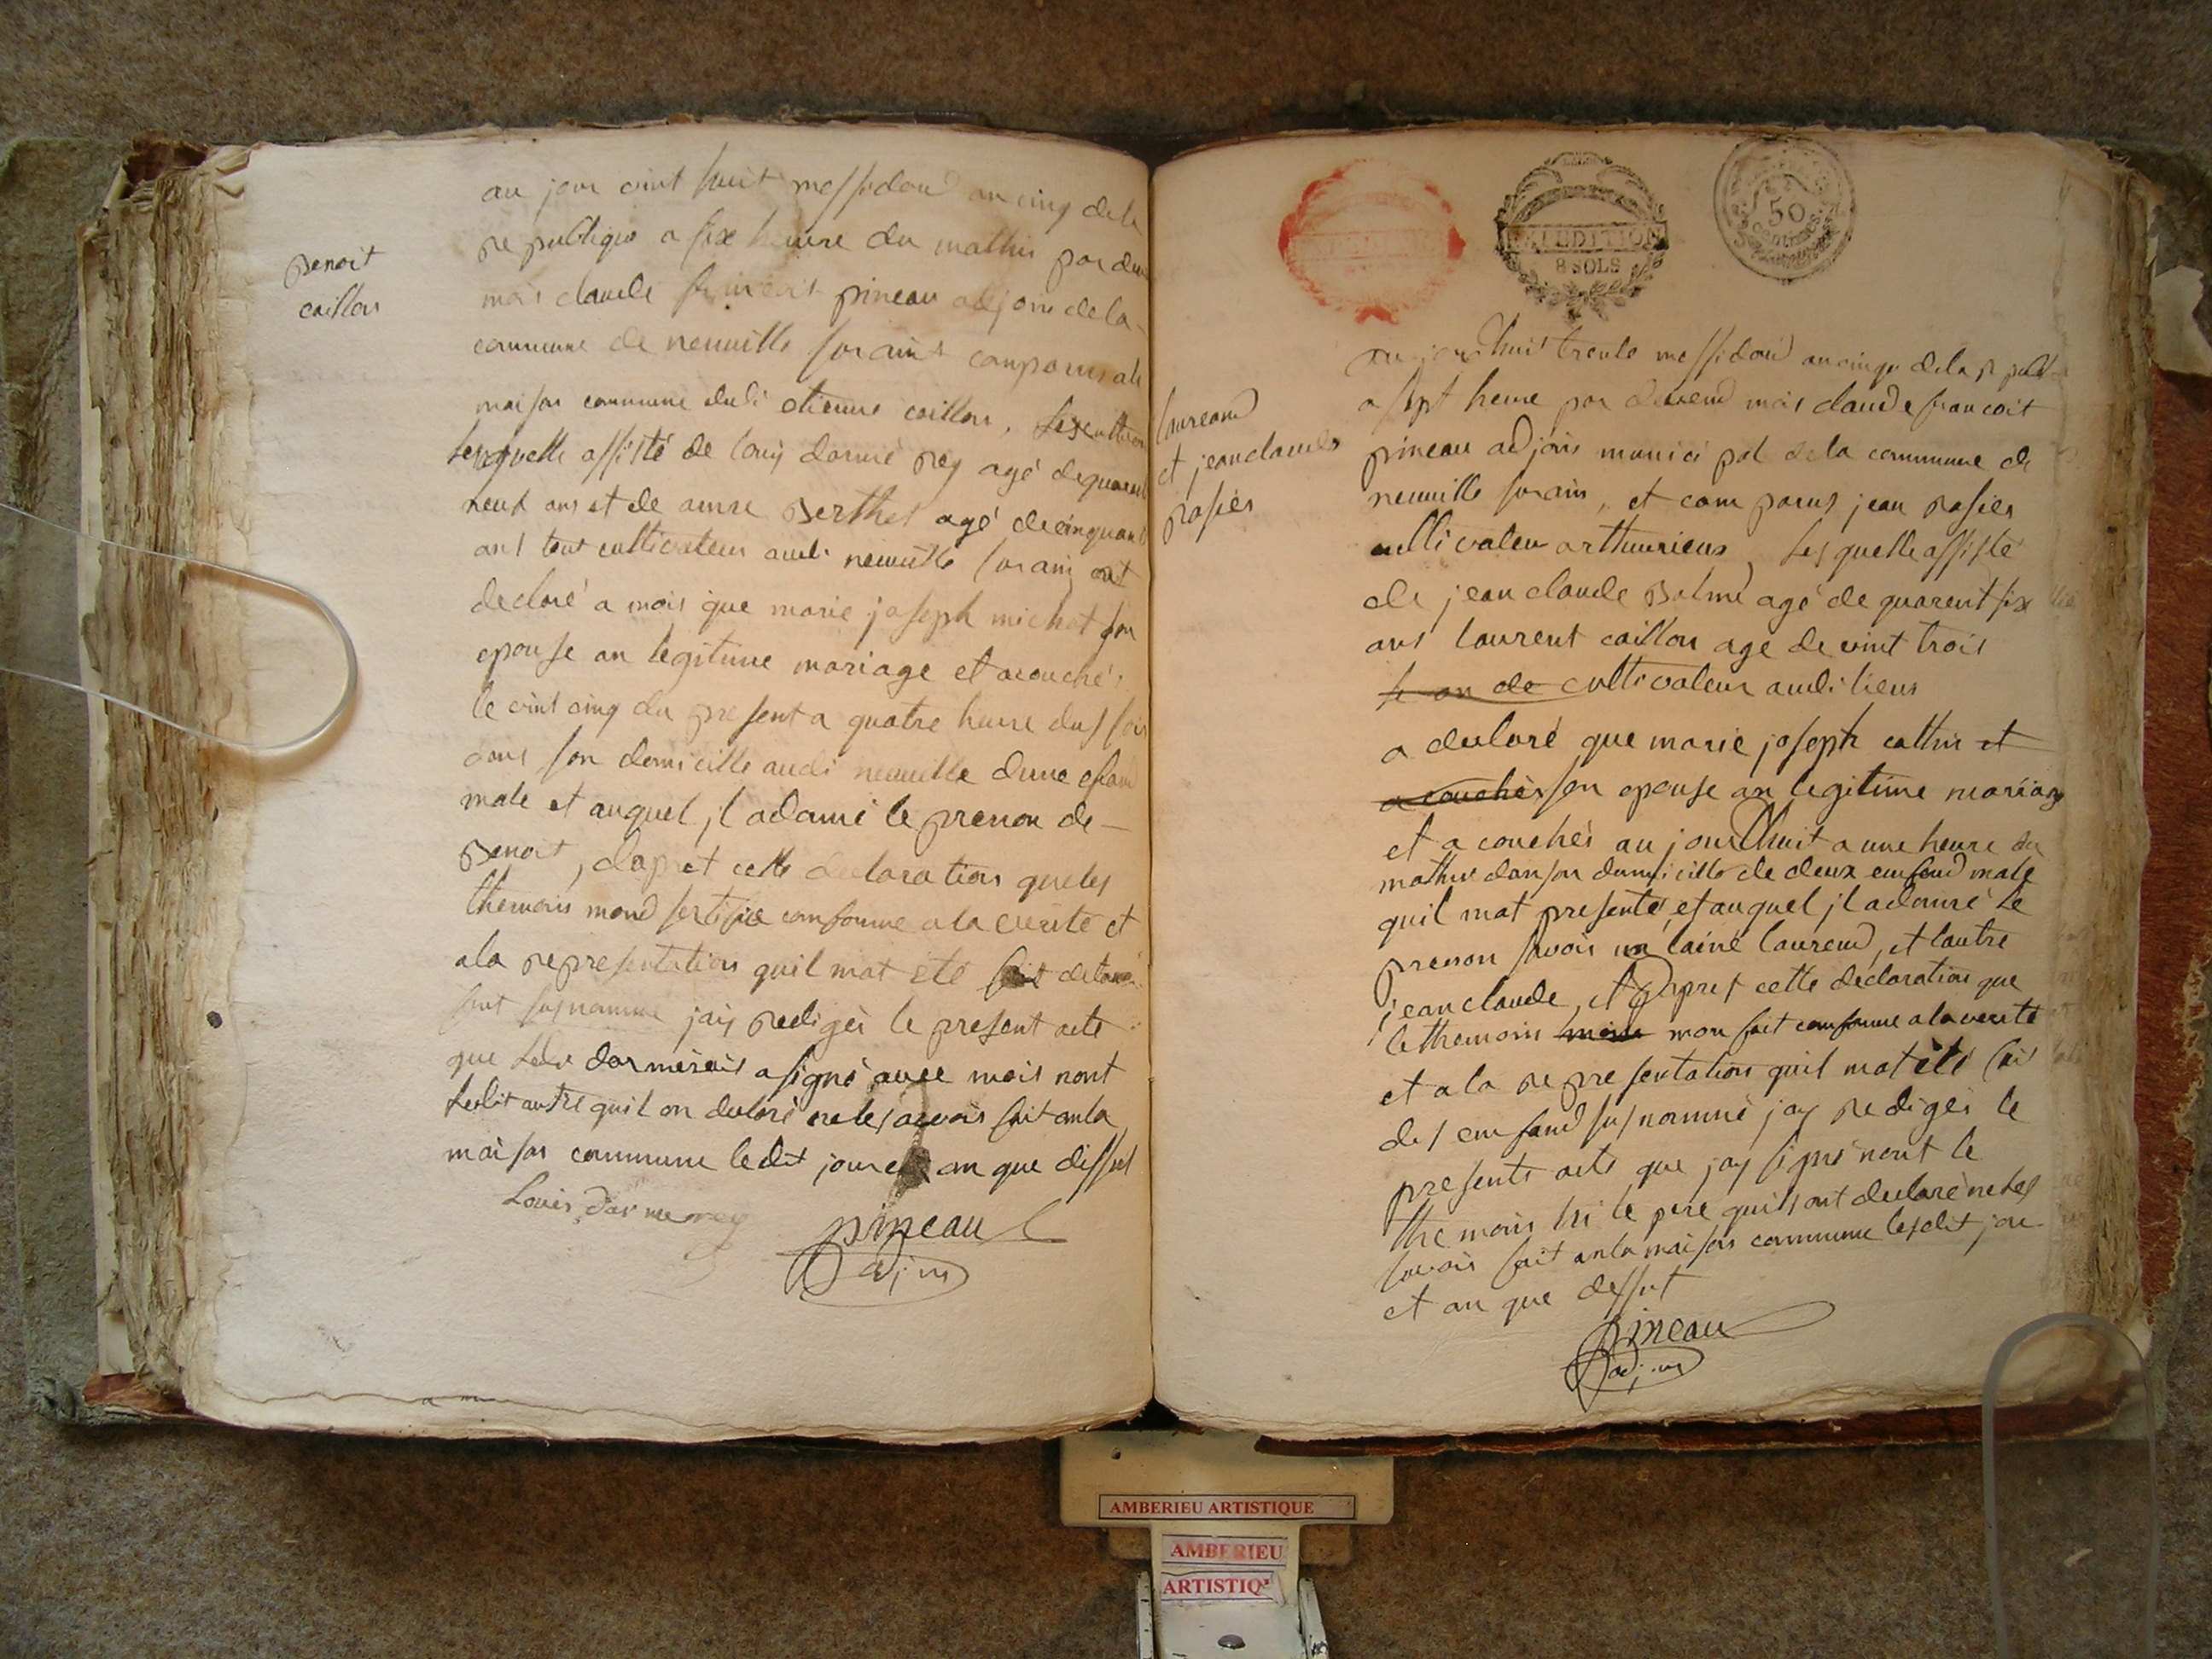 Benoit
caillon
au jour vint huit messidord an cinq de la
republique a six heure du mathin par de
mois claude francoit pineau adjoin de la
commune de neuville surains comparus a la
maison commune dudi etienne caillon,
lesquelle assisté de louis darmé rey agé de quarent
neuf ans et de aimé Berthet agé de cinquant
ans tout cultivateur audi neuville surains ont
declaré a mois que marie joseph michot son
epouse an legitime mariage et acouchés
le vint cinq du present a quatre heure du soir
dans son domicille audi neuville dune efand
male et auquel, il adonné le prenon de
Benoit, dapret cette declaration que les
themoins mond sertifié conforme a la verité et
a la representation quil mat été fait de lenfant
susnomme jais redigés le present acte
que Ledi darmereis a signé avec mois nont
Ledit autre quil on declaré ne les savois fait an la
maison commune ledit jour et an que dissut
Louis Darmerey
pineau
adjoin
EXPEDITION
8 SOLS
50
CENTIMES
laureand
et jean claude
rosier
au jourdhuit trente messidord an cinq de la republi
a sept heure par devend mois claude francoit
pineau adjoins municipal de la commune de
neuville surains, et comparus jean rosier
cultivateur arthurieux, lesquelle assisté
de jean claude Balme agé de quarent six
ans laurent caillon age de vint trois
se an de cultivateur audi lieus
a declaré que marie joseph cathin et
acouchés son epouse an legitime mariag
et a couchés au jourdhuit a une heure du
mathin dan son dumicille de deux enfand male
quil mat presenté, et auquel il adonné le
prenon savois un lainé laurend, et lautre
jean claude, et dapret cette declaration que
le themoins mon fait conforme a la verité
et a la representation quil mat été fai
des enfand susnommé jay redigés le
presente acte que jay signé nont le
themoins ni le pere quils ont declaré ne les
savois fait an la maison commune lesdit jour
et an que dessut
pineau
adjoin
AMBERIEU ARTISTIQUE
AMBERIEU
ARTISTIQ